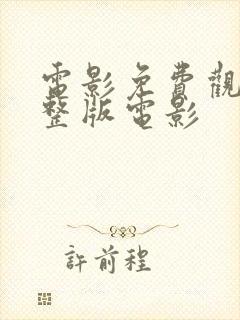 電影免費觀
整版電影
許前程